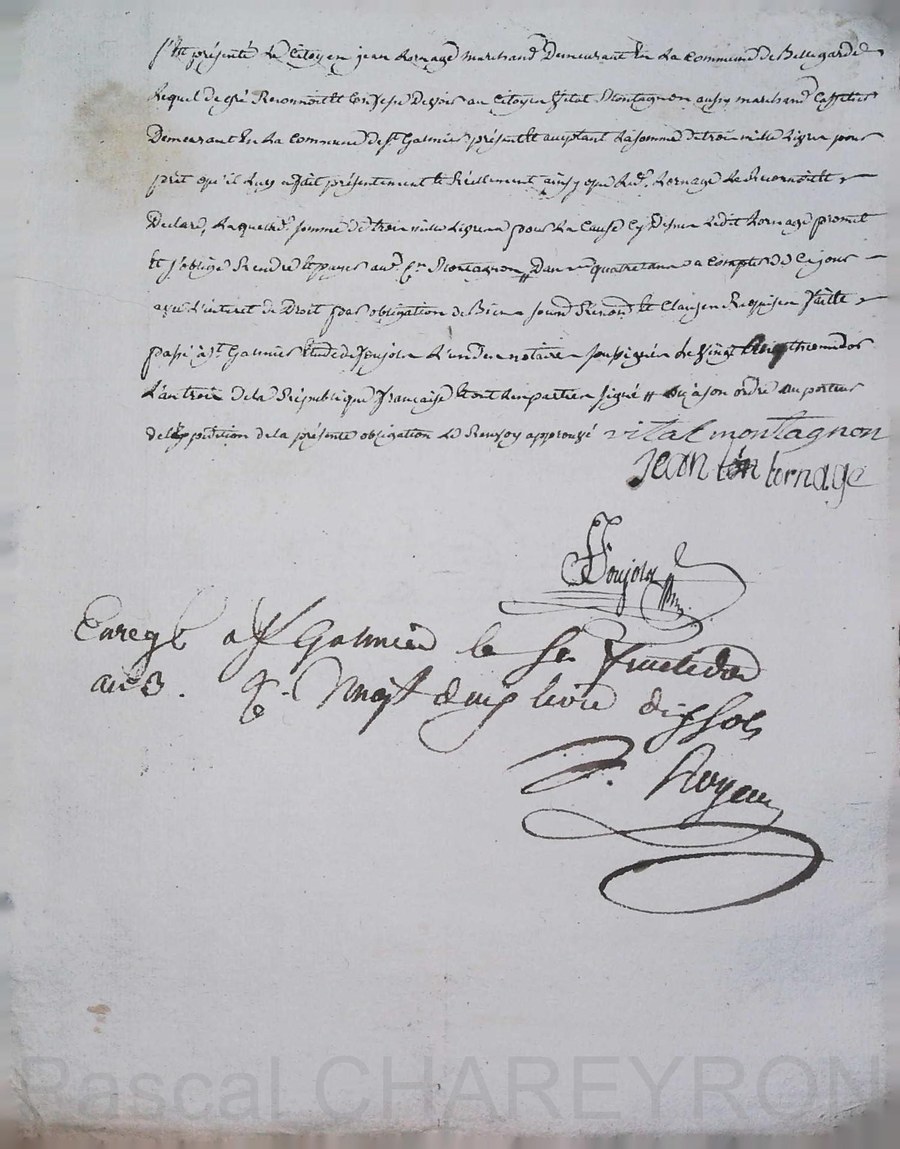 S'est présenté Le Citoyen jean Tornage marchand Demeurant En La Commune de Bellegarde
Lequel de gré Reconnoit et Confesse Devoir au Citoyen Vital Montagnon aussy marchand Caffetier
Demeurant En La Commune de St Galmier présent et acceptant La somme de trois mille Livres pour
prêt qu'il Luy a fait présentement et Réellement ainsy que Led. Tornage Le Reconnoit et
Declare, Laquelle d. somme de trois mille Livres pour La Cause Cy Dessus Ledit Tornage promet
Et s'oblige Rendre et payer aud. Cen Montagnon dans quatre ans a Compter de Ce jour
avec L'interet de Droit par obligation de Biens soumis Renond. et Clauses Requises faitte
passé à St Galmier étude de L'un des notaires soussignés Le vingt thermidor
L'an trois de la République française Et ont Les parties signé // ou à son ordre au porteur
de L'éxpédition de la présente obligation Le Renvoy approuvé vital montagnon
jean tornage
Enregt a St Galmier le fructidor
an 3. R. Vingt cinq livre dix sols
Pascal CHAREYRON